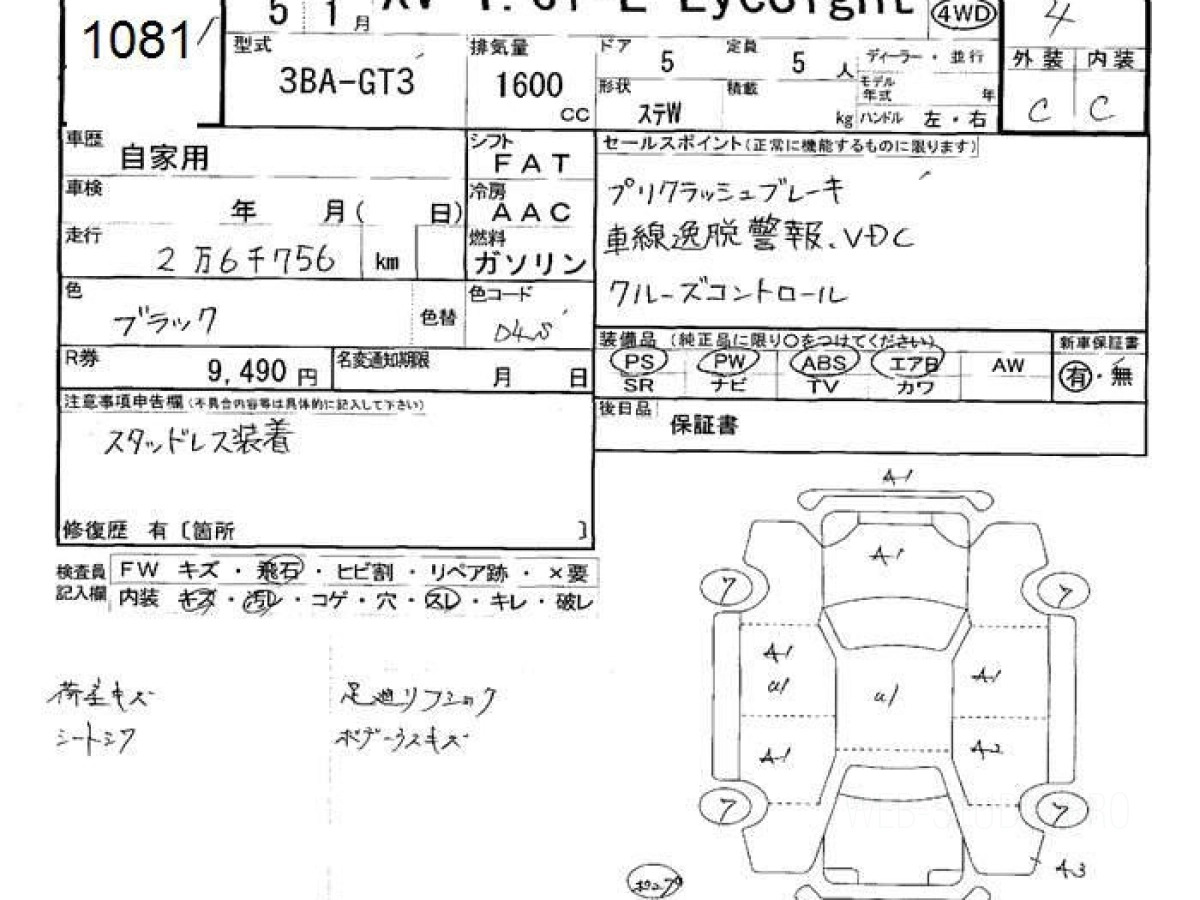 1081
5 1月 XV 1.6i-L EyeSight 4WD 4
型式 3BA-GT3
排気量 1600 CC
ドア 5 定員 5 人
形状 ステW 積載 kg
ディーラー・並行
モデル年式 年
ハンドル 左・右
外装 内装
C C
車歴 自家用
シフト FAT
車検 年 月( 日)
冷房 AAC
走行 2万6千756 km
燃料 ガソリン
色 ブラック 色替
色コード D4S
R券 9,490 円
名変通知期限 月 日
セールスポイント(正常に機能するものに限ります)
プリクラッシュブレーキ
車線逸脱警報、VDC
クルーズコントロール
装備品 (純正品に限り○をつけてください)
PS PW ABS エアB AW
SR ナビ TV カワ
新車保証書
有・無
後日品 保証書
注意事項申告欄(不具合内容等は具体的に記入して下さい)
スタッドレス装着
修復歴 有〔箇所 〕
検査員記入欄
FW キズ・飛石・ヒビ割・リペア跡・×要
内装 キズ・汚レ・コゲ・穴・スレ・キレ・破レ
荷室キズ
シートシワ
足廻リフショック
ボデーラスキズ
A1
A1
7 7
A1
U1
U1
A1
A1
A2
7 7
A3